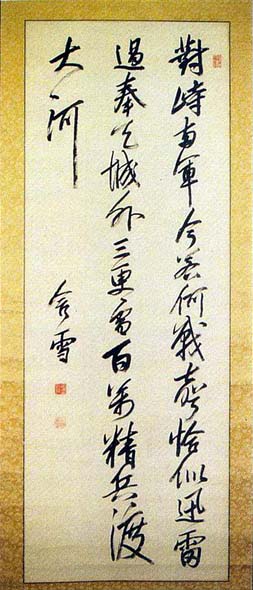 對峙両軍今若何戰聲恰似迅雷
過奉天城外三更雪百萬精兵渡
大河
含雪